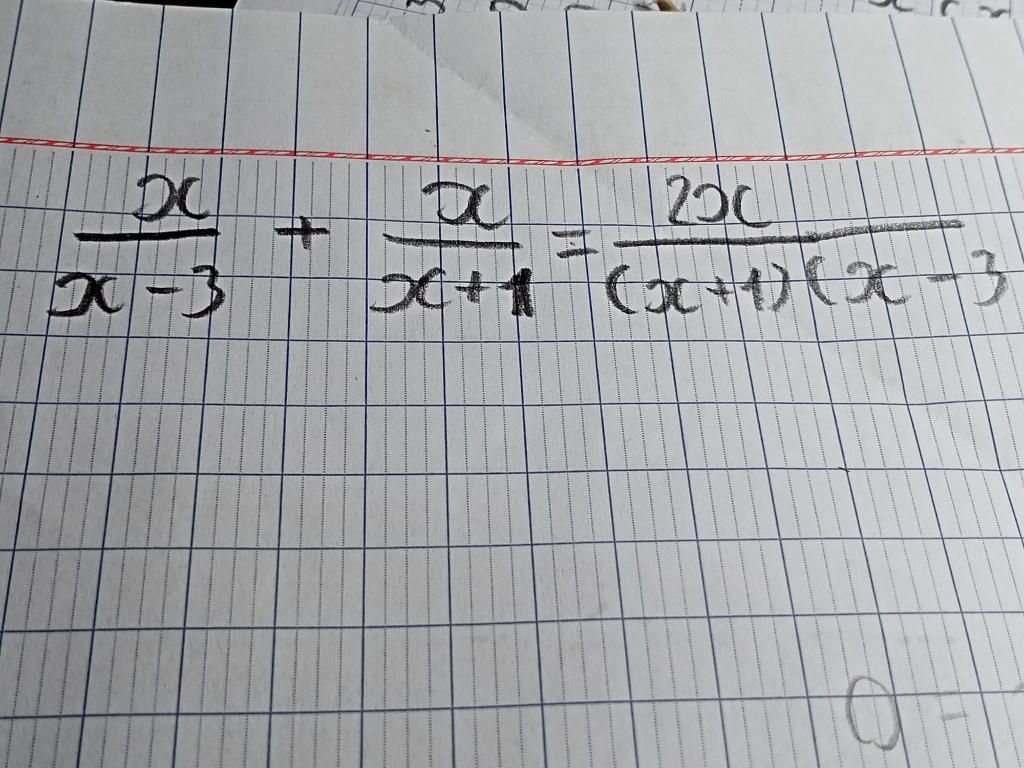 x/(x-3) + x/(x+1) = 2x/((x+1)(x-3
0 -